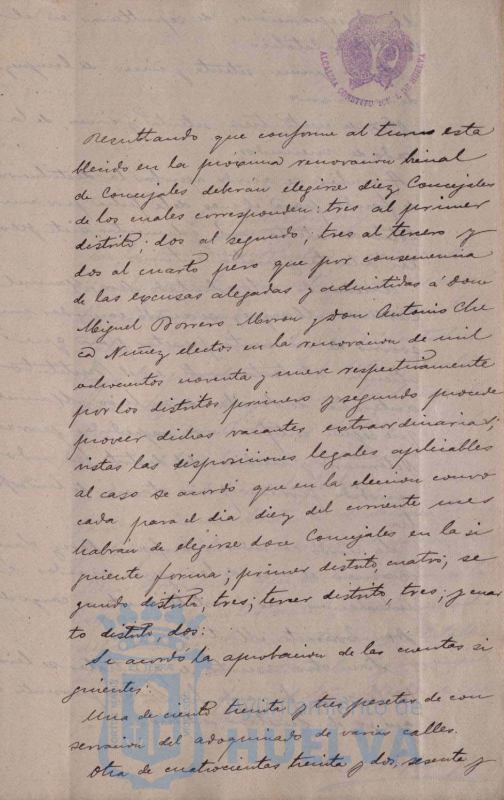 ALCALDIA CONSTITUCIONAL DE HUELVA
Resultando que conforme al turno esta
blecido en la próxima renovacion bienal
de Concejales deberán elegirse diez Concejales
de los cuales corresponden: tres al primer
distrito; dos al segundo; tres al tercero y
dos al cuarto pero que por consecuencia
de las excusas alegadas y admitidas á don
Miguel Borrero Moron y Don Antonio Che
ca Nuñez electos en la renovacion de mil
ochocientos noventa y nueve respectivamente
por los distritos primero y segundo procede
proveer dichas vacantes extraordinarias;
vistas las disposiciones legales aplicables
al caso se acordó que en la eleccion convo
cada para el dia diez del corriente mes
habran de elegirse doce Concejales en la si
guiente forma; primer distrito, cuatro; se
gundo distrito, tres; tercer distrito, tres; y cuar
to distrito, dos.
Se acordó la aprobacion de las cuentas si
guientes:
Una de ciento treinta y tres pesetas de con
servacion del adoquinado de varias calles.
Otra de cuatrocientas treinta y dos, sesenta y
Ayuntamiento de
HUELVA